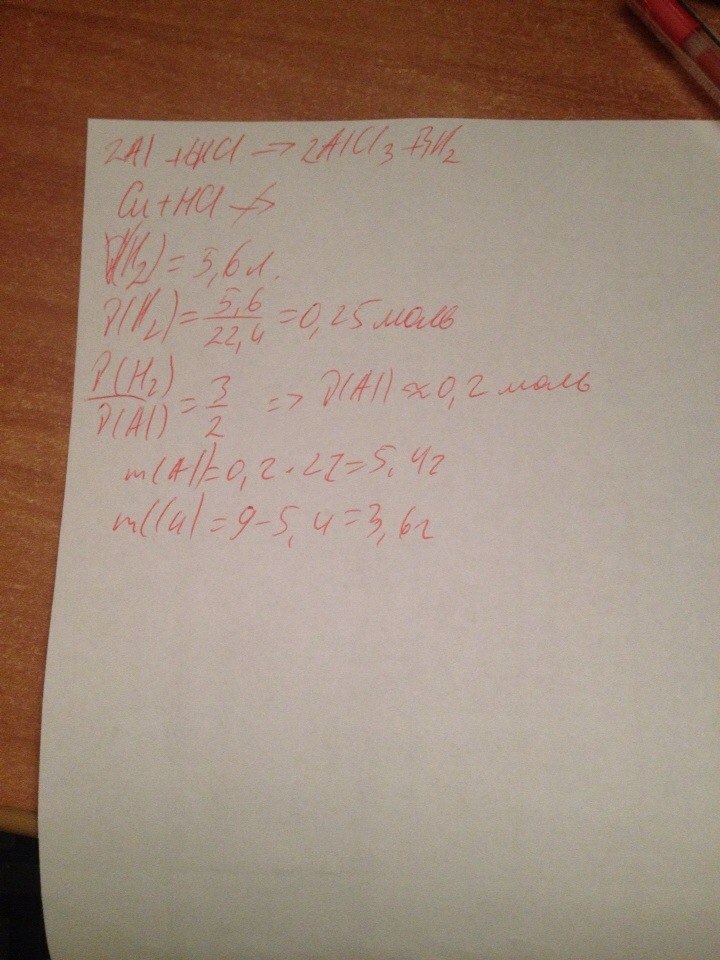 2Al + 6HCl → 2AlCl₃ + 3H₂
Cu + HCl ↛
V(H₂) = 5,6 л.
ν(H₂) = 5,6/22,4 = 0,25 моль
ν(H₂)/ν(Al) = 3/2 => ν(Al) ≈ 0,2 моль
m(Al) = 0,2 · 27 = 5,4г
m(Cu) = 9 - 5,4 = 3,6г